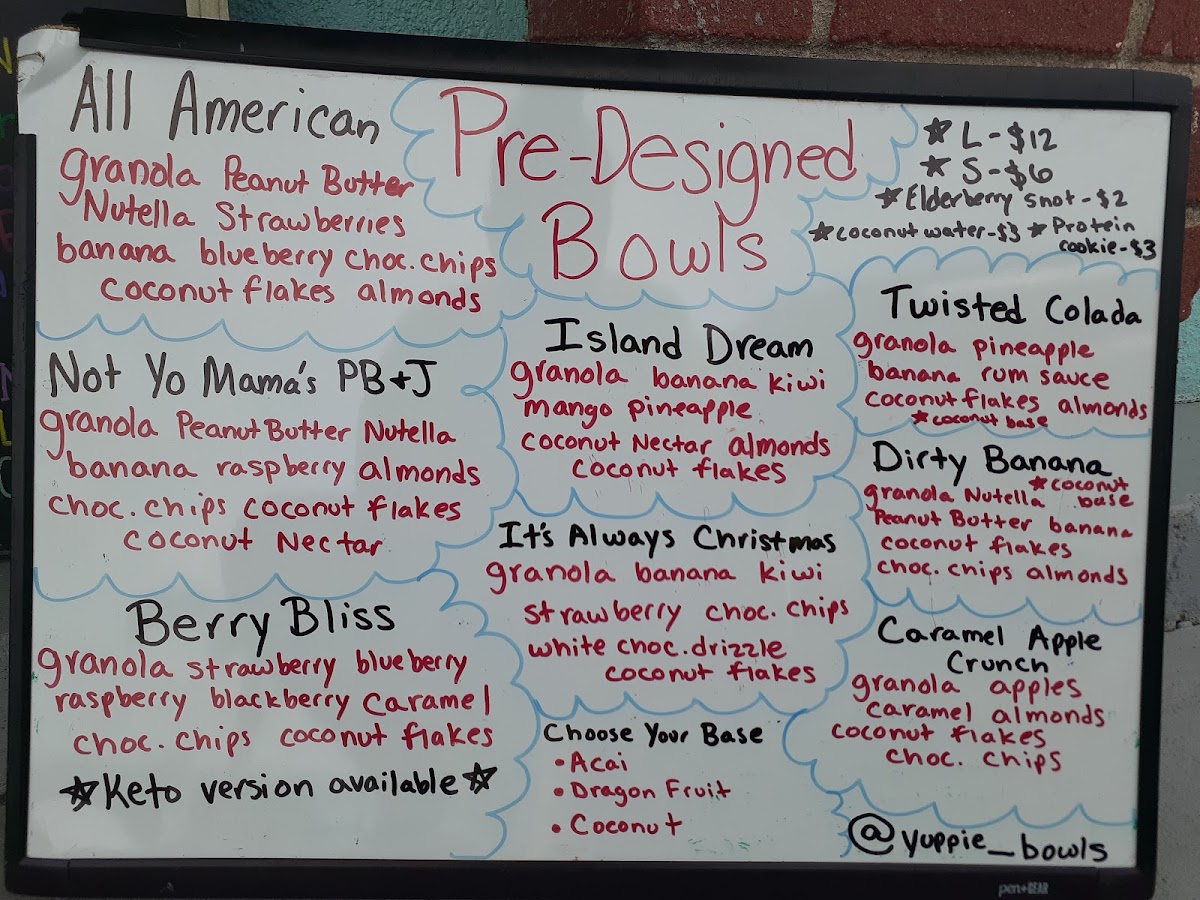 Pre-Designed
Bowls
★ L - $12
★ S - $6
★ Elderberry shot - $2
★ coconut water - $3 ★ Protein
cookie - $3
All American
granola Peanut Butter
Nutella Strawberries
banana blueberry choc. chips
coconut flakes almonds
Not Yo Mama's PB+J
granola Peanut Butter Nutella
banana raspberry almonds
choc. chips coconut flakes
coconut Nectar
Berry Bliss
granola strawberry blueberry
raspberry blackberry caramel
choc. chips coconut flakes
☆ Keto version available ☆
Island Dream
granola banana kiwi
mango pineapple
coconut Nectar almonds
coconut flakes
It's Always Christmas
granola banana kiwi
strawberry choc. chips
white choc. drizzle
coconut flakes
Choose Your Base
• Acai
• Dragon Fruit
• Coconut
Twisted Colada
granola pineapple
banana rum sauce
coconut flakes almonds
★ coconut base
Dirty Banana
★ coconut
base
granola Nutella
Peanut Butter banana
coconut flakes
choc. chips almonds
Caramel Apple
Crunch
granola apples
caramel almonds
coconut flakes
choc. chips
@yuppie_bowls
pen+GEAR